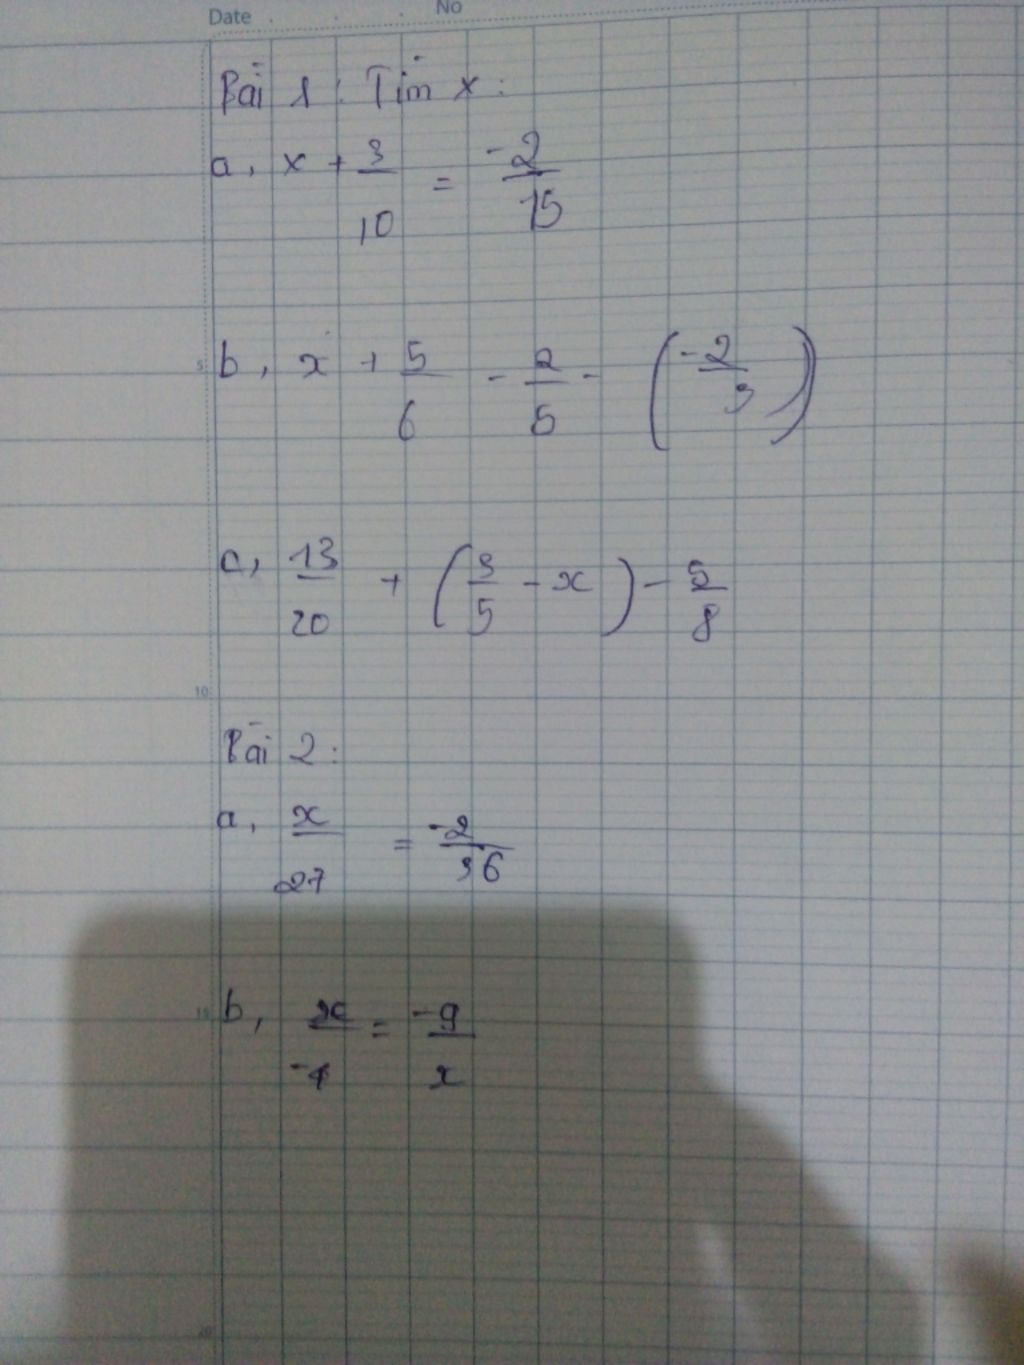 Date No
Bài 1 : Tìm x :
a, x + 3/10 = -2/15
5 b, x + 5/6 - 2/5 - (-2/3)
c, 13/20 + (3/5 - x) - 5/8
10
Bài 2 :
a, x/27 = -2/36
15 b, x/-4 = -9/x
20